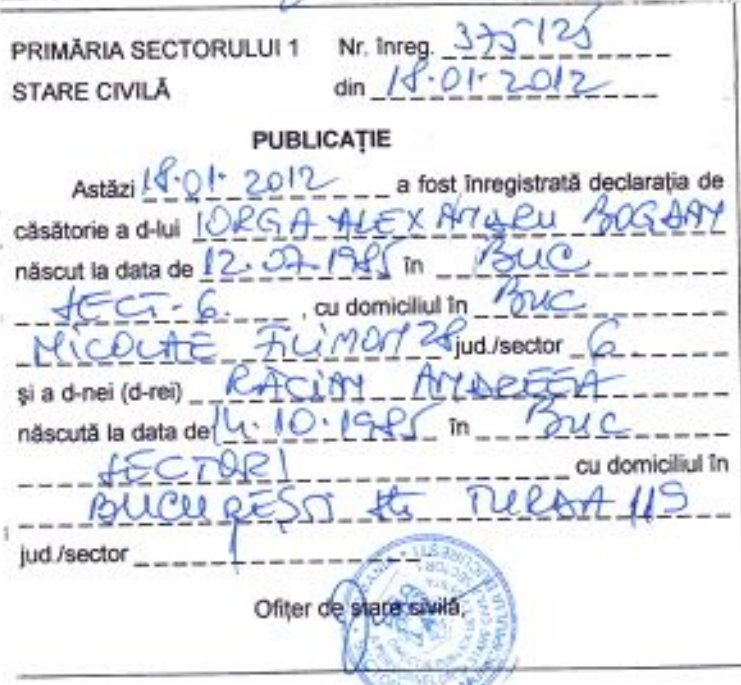 PRIMĂRIA SECTORULUI 1 Nr. înreg. 375125
STARE CIVILĂ din 18.01.2012
PUBLICAȚIE
Astăzi 18.01.2012 a fost înregistrată declarația de
căsătorie a d-lui IORGA ALEXANDRU BOGDAN
născut la data de 12.07.1985 în BUC
SECT. 6. , cu domiciliul în BUC
NICOLAE FILIMON 28 jud./sector 6
și a d-nei (d-rei) RACIAN ANDREEA
născută la data de 14.10.1985 în BUC
SECTOR 1 cu domiciliul în
BUCUREȘTI str TURDA 119
jud./sector 1
Ofițer de stare civilă,